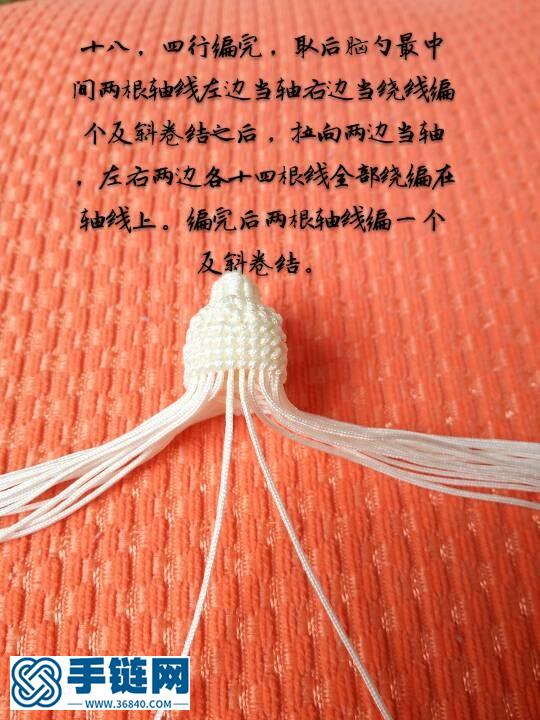 十八，四行编完，取后脑勺最中
间两根轴线左边当轴右边当绕线编
个反斜卷结之后，拉向两边当轴
，左右两边各十四根线全部绕编在
轴线上。编完后两根轴线编一个
反斜卷结。
手链网
WWW.36840.COM